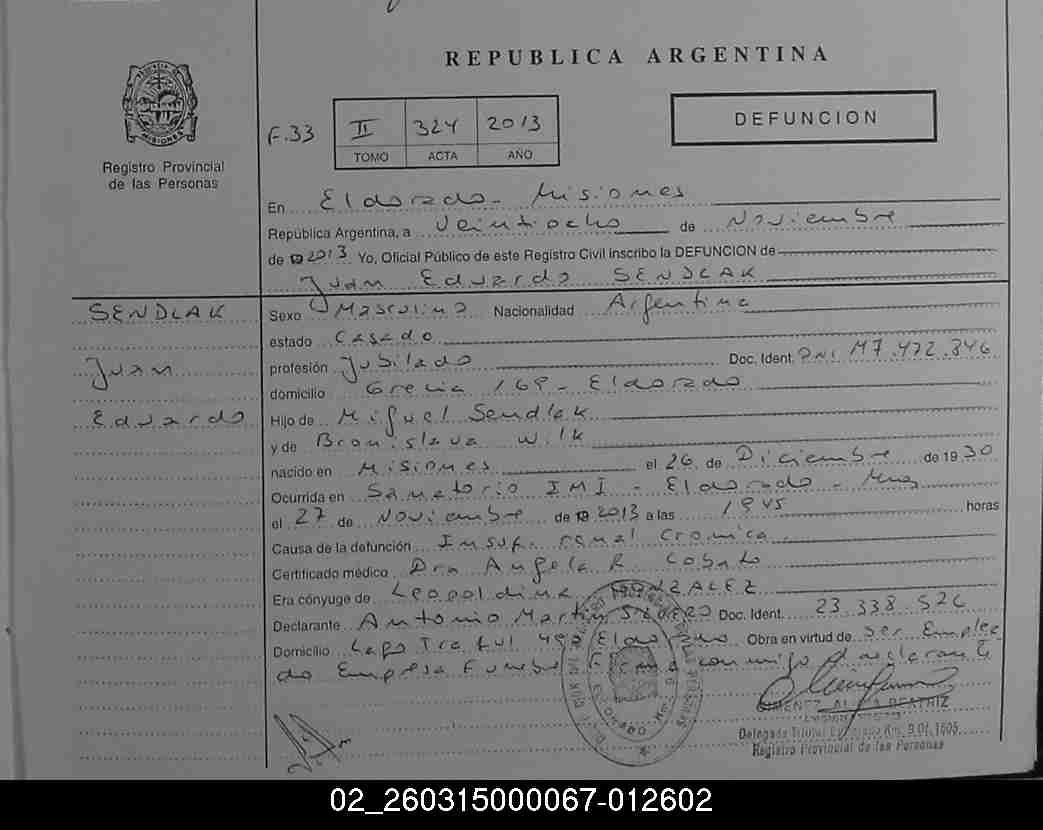 REPUBLICA ARGENTINA
Registro Provincial
de las Personas
F.33
II 324 2013
TOMO ACTA AÑO
DEFUNCION
En Eldorado - Misiones
República Argentina, a Veintiocho de Noviembre
de 2013 Yo, Oficial Público de este Registro Civil inscribo la DEFUNCION de
Juan Eduardo SENDLAK
SENDLAK
Juan
Eduardo
Sexo Masculino Nacionalidad Argentina
estado Casado
profesión Jubilado Doc. Ident. DNI M7.472.346
domicilio Grecia 169 - Eldorado
Hijo de Miguel Sendlak
y de Bronislava Wilk
nacido en Misiones el 26 de Diciembre de 1930
Ocurrida en Sanatorio IMI - Eldorado - Mnes
el 27 de Noviembre de 2013 a las 1945 horas
Causa de la defunción Insuf. renal Cronica
Certificado médico Dra Angela R. Cobato
Era cónyuge de Leopoldina GONZALEZ
Declarante Antonio Martin Doc. Ident. 23.338.526
Domicilio Lago Traful Eldorado Obra en virtud de Ser Emplea
do Empresa Funebre Firma conmigo el declarante
GIMENEZ BEATRIZ
Delegada Titular Eldorado Km. 9 Of. 1605
Registro Provincial de las Personas
02_260315000067-012602